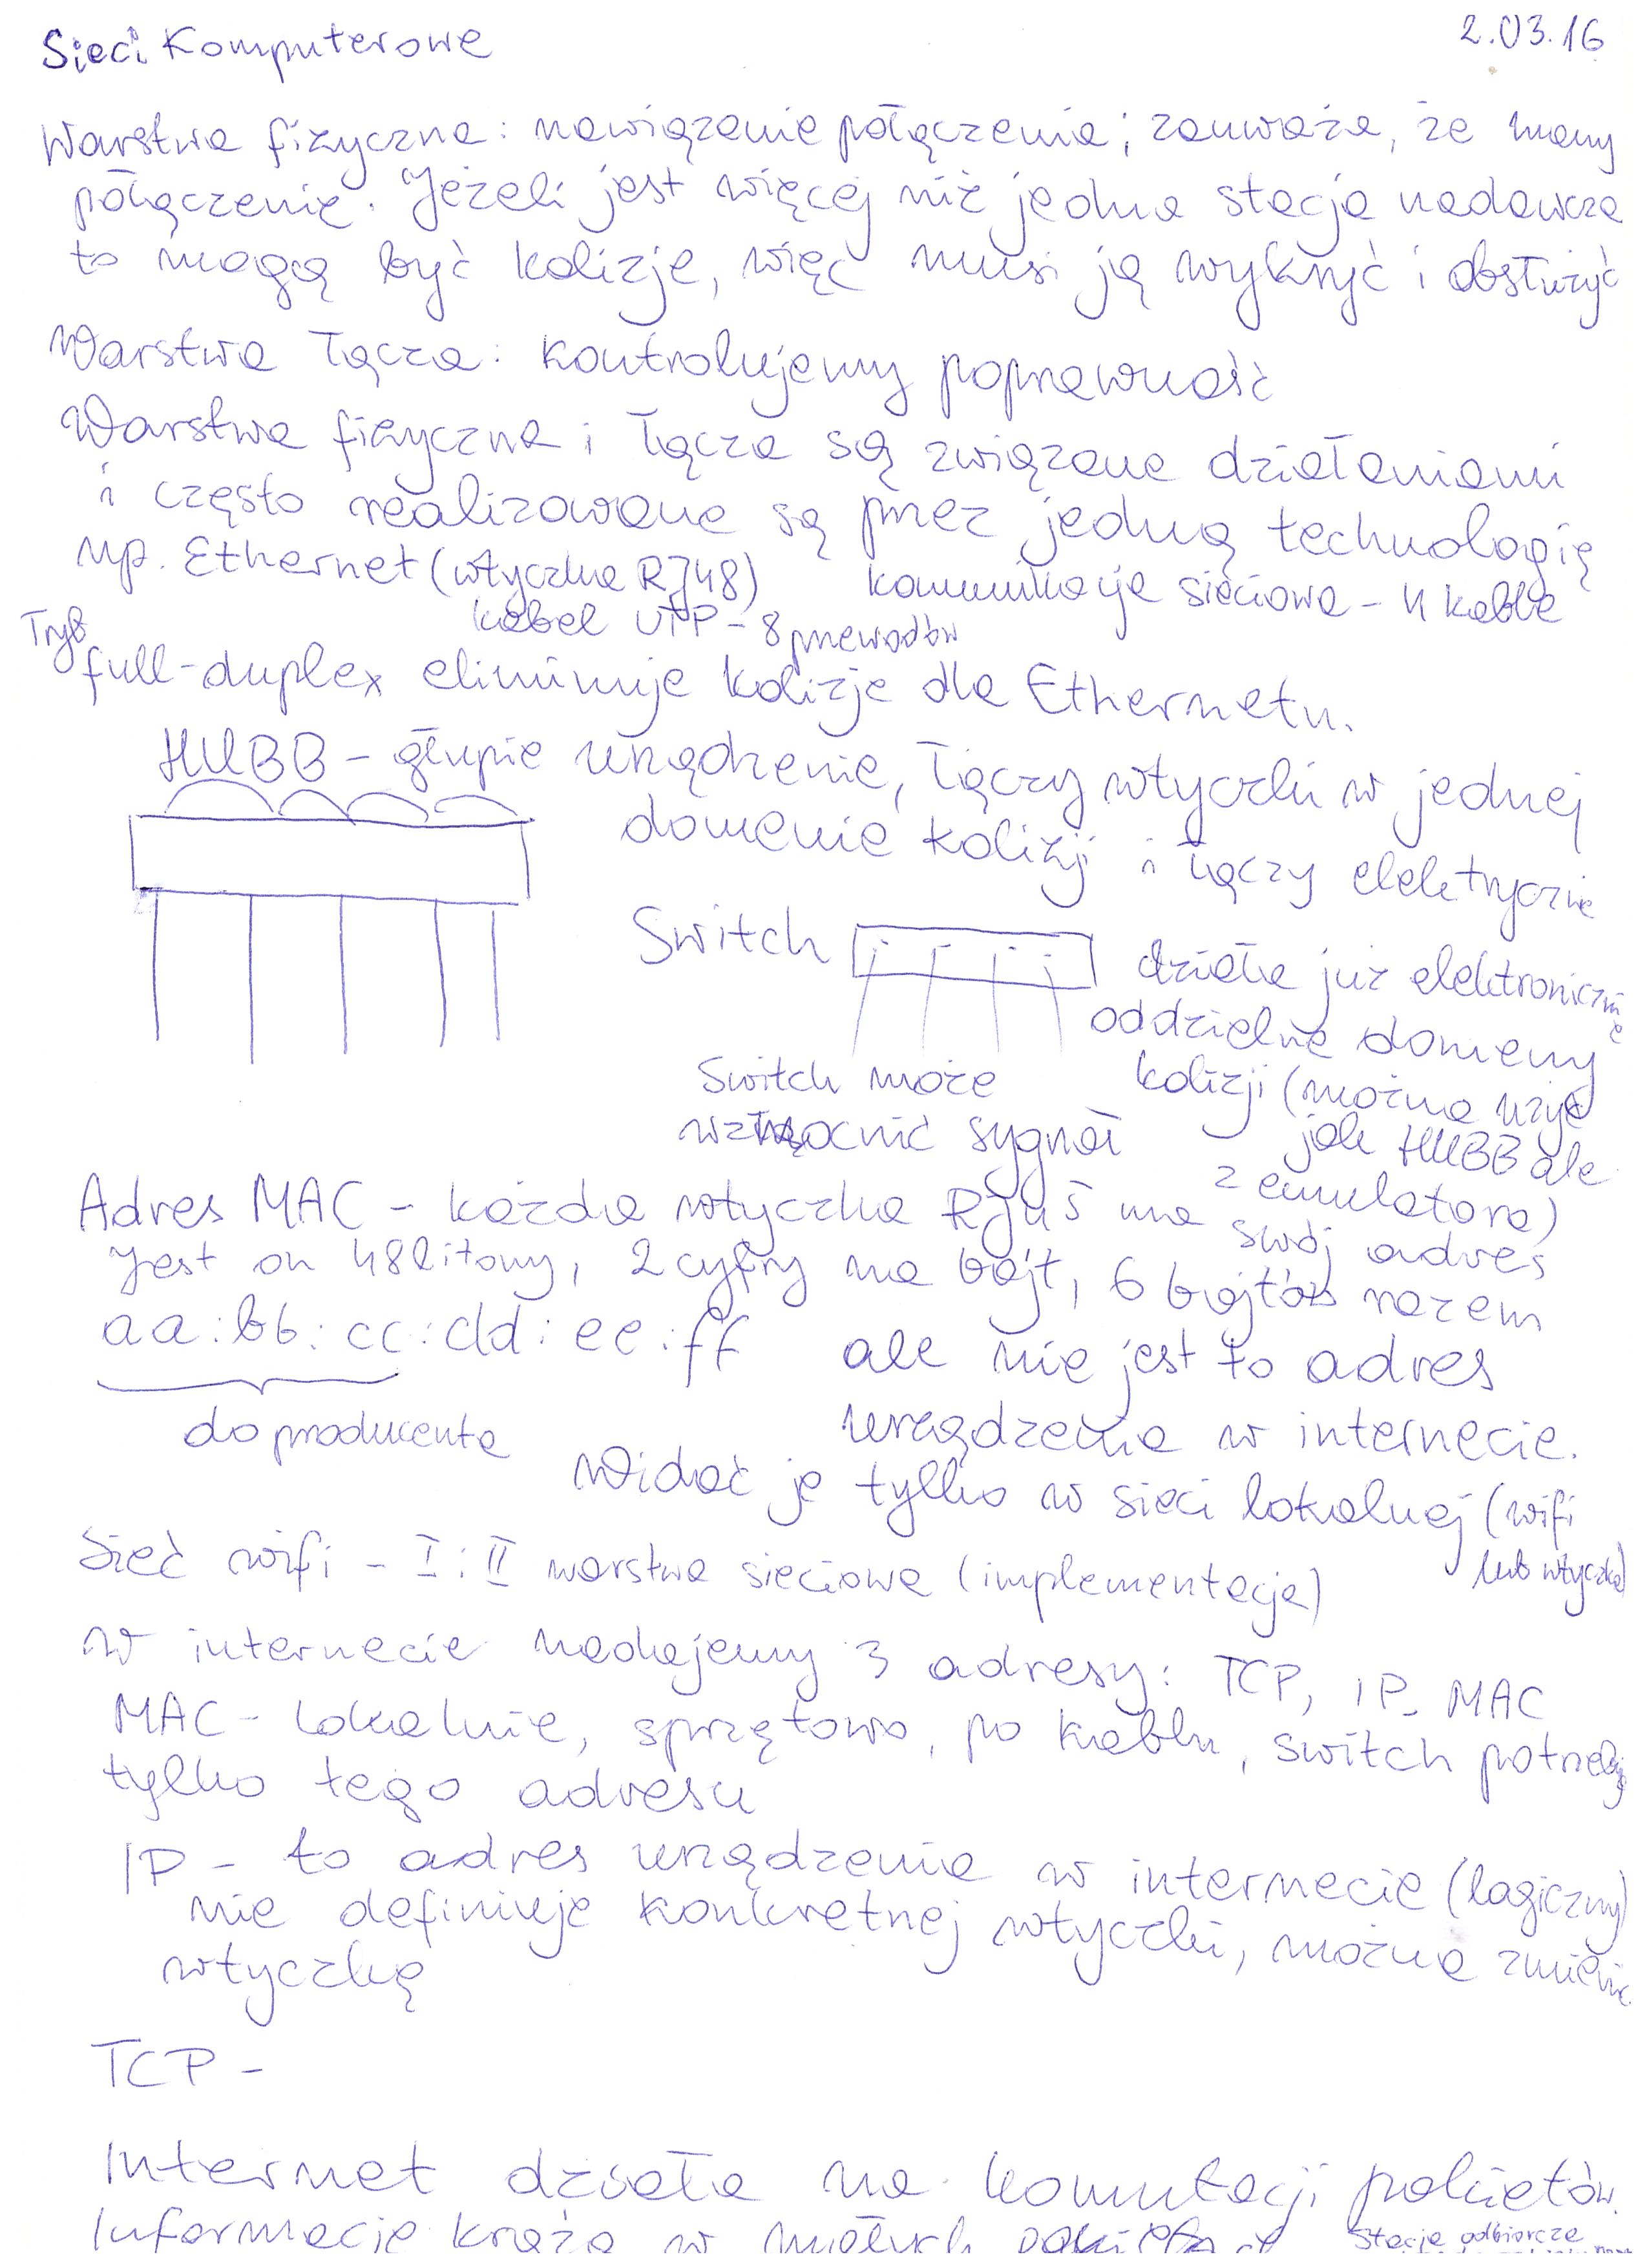 Sieci Komputerowe 2.03.16
Warstwa fizyczna: nawiązanie połączenia; zauważa, że mamy
połączenie. Jeżeli jest więcej niż jedna stacja nadawcza
to mogą być kolizje, więc musi ją wykryć i obsłużyć
Warstwa łącza: kontrolujemy poprawność
Warstwa fizyczna i łącza są związane działaniami
i często realizowane są przez jedną technologię
np. Ethernet (wtyczka RJ48) komunikacja sieciowa - 4 kable
kabel UTP - 8 przewodów
Tryb
full-duplex eliminuje kolizje dla Ethernetu.
HUBB - głupie urządzenie, łączy wtyczki w jednej
domenie kolizji i łączy elektrycznie
Switch działa już elektronicznie
oddzielne domeny
kolizji (można użyć
jak HUBB ale
z emulatora)
Switch może
wzmocnić sygnał
Adres MAC - każda wtyczka RJ45 ma swój adres
Jest on 48bitowy, 2 cyfry na bajt, 6 bajtów razem
aa:bb:cc:dd:ee:ff ale nie jest to adres
do producenta urządzenia w internecie.
Widać je tylko w sieci lokalnej (wifi
lub wtyczka)
Sieć wifi - I i II warstwa sieciowa (implementacja)
W internecie nadajemy 3 adresy: TCP, IP, MAC
MAC - lokalnie, sprzętowo, po kablu, switch potrzebuje
tylko tego adresu
IP - to adres urządzenia w internecie (logiczny)
nie definiuje konkretnej wtyczki, można zmienić
wtyczkę
TCP -
Internet działa na komutacji pakietów.
Informacje krążą w małych pakietach Stacja odbiorcza